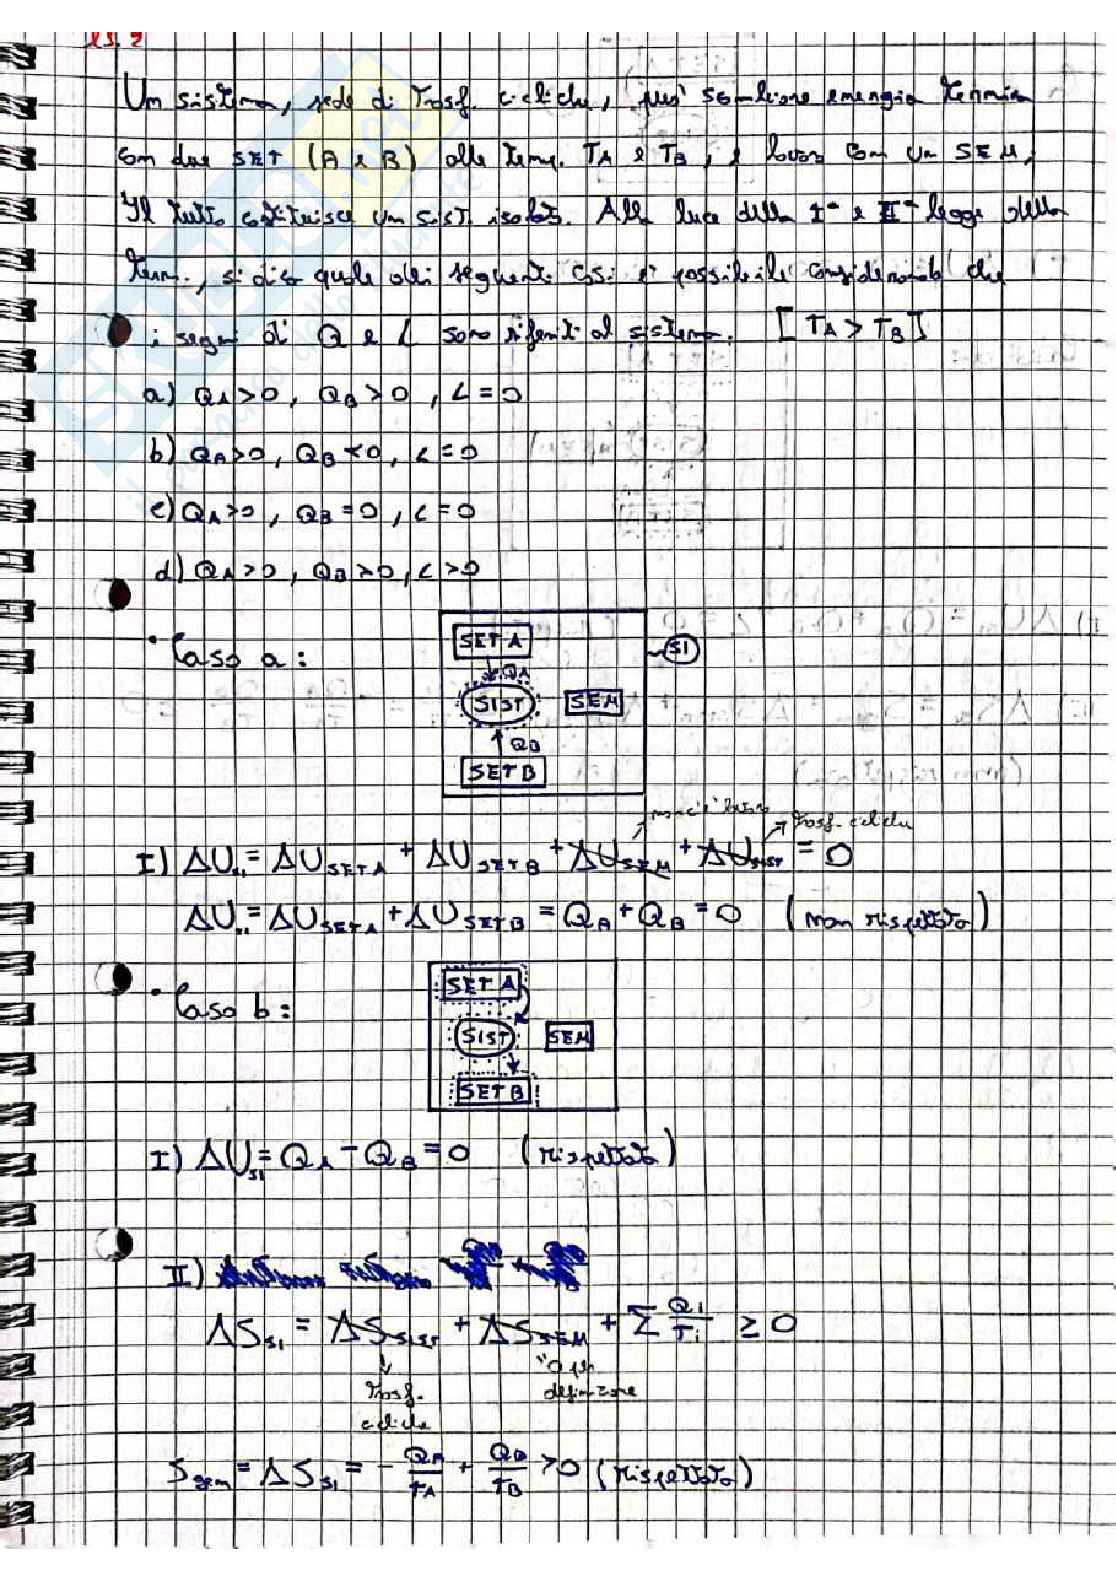 ES. 2
Un sistema, sede di trasf. cicliche, può scambiare energia termica
con due SET (A e B) alle temp. TA e TB, e lavoro con un SEM.
Il tutto costituisce un sist. isolato. Alla luce della I^a e II^a legge della
term., si dica quale dei seguenti casi è possibile considerando che
i segni di Q e L sono riferiti al sistema. [TA > TB]
a) QA>0, QB>0, L=0
b) QA>0, QB<0, L=0
c) QA>0, QB=0, L=0
d) QA>0, QB>0, L>0
• Caso a:
SET A
SI
QA
SIST
SEM
QB
SET B
non c'è lavoro
trasf. cicliche
I) ΔUsi = ΔUSETA + ΔUSETB + ΔUSEM + ΔUSIST = 0
ΔUsi = ΔUSETA + ΔUSETB = QA + QB = 0 (non rispettato)
• Caso b:
SET A
SIST
SEM
SET B
I) ΔUSI = QA - QB = 0 (rispettato)
II)
ΔSSI = ΔSSIST + ΔSSEM + Σ Qi/Ti ≥ 0
trasf. cicliche
"0 per definizione
Sgen = ΔSSI = - QA/TA + QB/TB > 0 (rispettato)